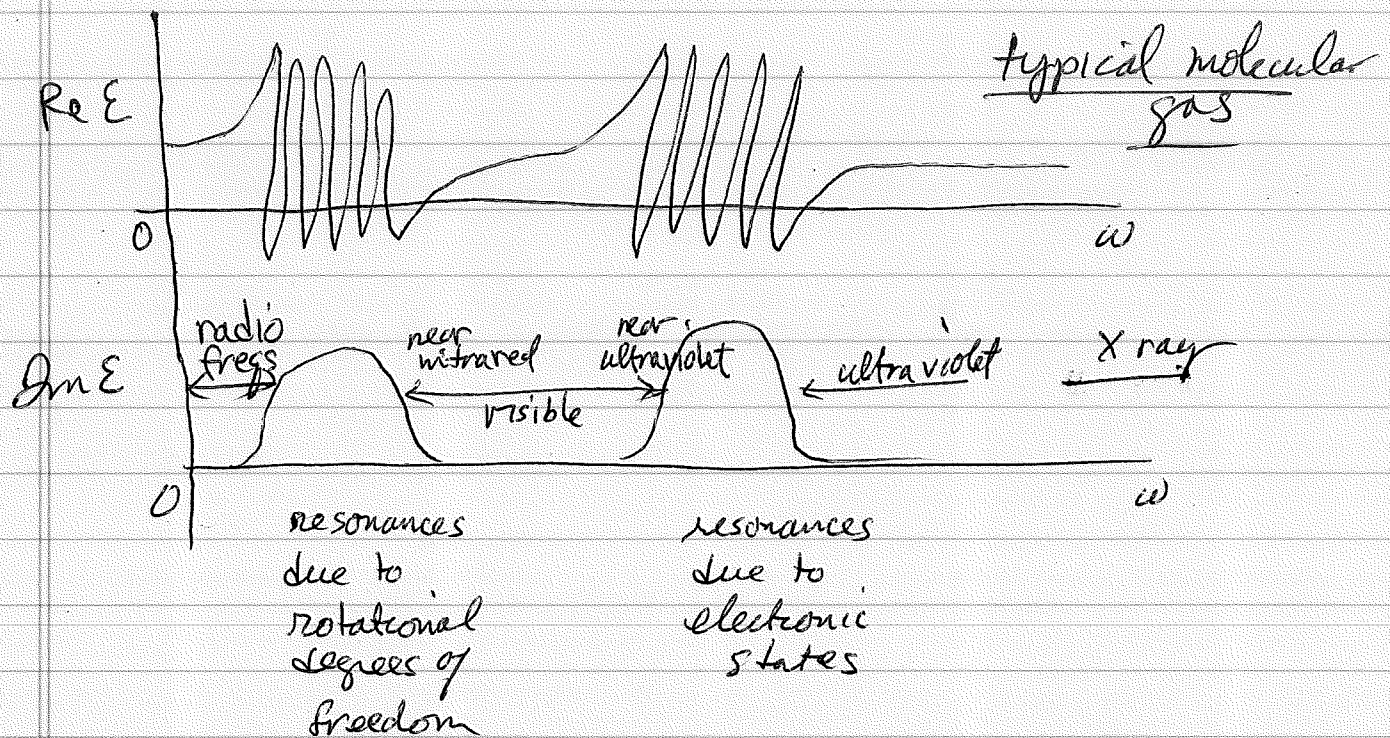 typical molecular
gas
Re ε
0
ω
radio
freqs
near
infrared
near
ultraviolet
ultraviolet
X ray
Im ε
visible
0
ω
resonances
due to
rotational
degrees of
freedom
resonances
due to
electronic
states